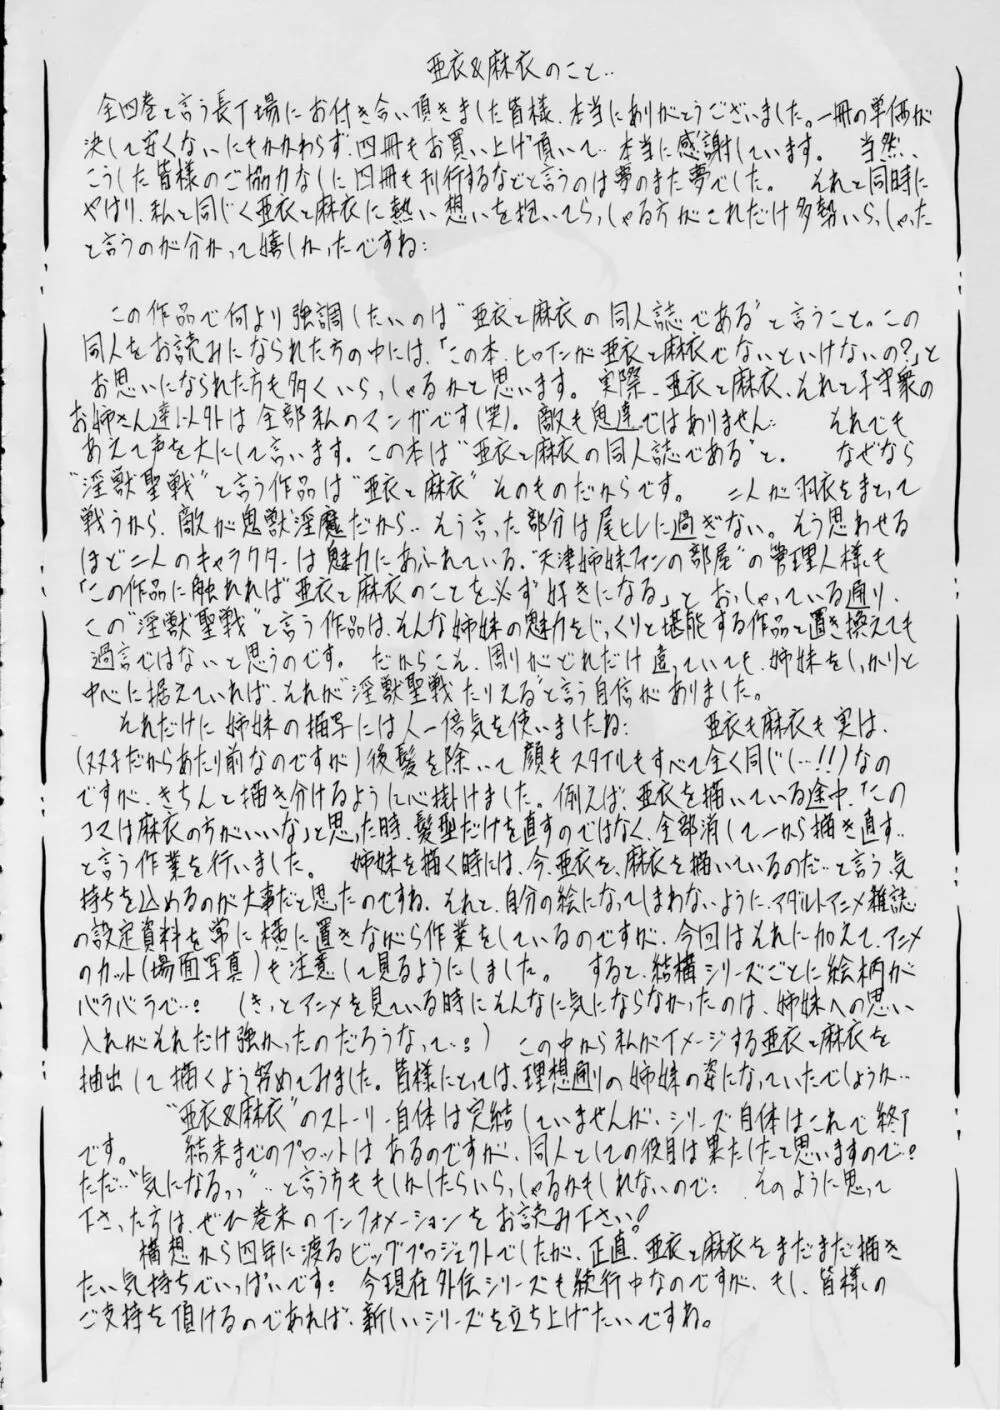 亜衣&麻衣のこと‥
全四巻と言う長丁場にお付き合い頂きました皆様、本当にありがとうございました。一冊の単価が
決して安くないにもかかわらず、四冊もお買い上げ頂いて‥本当に感謝しています。 当然、
こうした皆様のご協力なしに四冊も刊行するなどと言うのは夢のまた夢でした。 それと同時に
やはり、私と同じく亜衣と麻衣に熱い想いを抱いてらっしゃる方がこれだけ多勢いらっしゃった
と言うのが分かって嬉しかったですね:
この作品で何より強調したいのは“亜衣と麻衣の同人誌である”と言うこと。この
同人をお読みになられた方の中には、「この本、ヒロインが亜衣と麻衣でないといけないの?」と
お思いになられた方も多くいらっしゃるかと思います。実際、亜衣と麻衣、それと子守衆の
お姉さん達以外は全部私のマンガです(笑)。敵も鬼達ではありません: それでも
あえて声を大にして言います。この本は“亜衣と麻衣の同人誌である”と. なぜなら
“淫獣聖戦”と言う作品は“亜衣と麻衣”そのものだからです。 二人が羽衣をまとって
戦うから、敵が鬼獣淫魔だから‥そう言った部分は尾ヒレに過ぎない。そう思わせる
ほど二人のキャラクターは魅力にあふれている、“天津姉妹ファンの部屋”の管理人様も
「この作品に触れれば亜衣と麻衣のことを必ず好きになる」とおっしゃっている通り、
この“淫獣聖戦”と言う作品は、そんな姉妹の魅力をじっくりと堪能する作品と置き換えても
過言ではないと思うのです。 だからこそ、周りがどれだけ違っていても、姉妹をしっかりと
中心に据えていれば、それが“淫獣聖戦たりえる”と言う自信がありました。
それだけに姉妹の描写には人一倍気を使いましたね: 亜衣も麻衣も実は、
(双子だからあたり前なのですが)後髪を除いて顔もスタイルもすべて全く同じ(…!!)なの
ですが、きちんと描き分けるように心掛けました。例えば、亜衣を描いている途中、「この
コマは麻衣の方がいいな」と思った時、髪型だけを直すのではなく、全部消して一から描き直す‥
と言う作業を行いました。 姉妹を描く時には、今、亜衣を、麻衣を描いているのだ‥と言う気
持ちを込めるのが大事だと思ったのですね、それと、自分の絵になってしまわないように、アダルトアニメ雑誌
の設定資料を常に横に置きながら作業をしているのですが、今回はそれに加えて、アニメ
のカット(場面写真)も注意して見るようにしました。 すると、結構シリーズごとに絵柄が
バラバラで‥: (きっとアニメを見ている時にそんなに気にならなかったのは、姉妹への思い
入れがそれだけ強かったのだろうなって‥:) この中から私がイメージする亜衣と麻衣を
抽出して描くよう努めてみました。皆様にとっては、理想通りの姉妹の姿になっていたでしょうか‥
“亜衣&麻衣”のストーリー自体は完結していませんが、シリーズ自体はこれで終了
です。 結末までのプロットはあるのですが、同人としての役目は果たしたと思いますので:
ただ‥“気になるっっ”‥と言う方ももしかしたらいらっしゃるかもしれないので: そのように思って
下さった方は、ぜひ巻末のインフォメーションをお読み下さい!
構想から四年に渡るビッグプロジェクトでしたが、正直、亜衣と麻衣をまだまだ描き
たい気持ちでいっぱいです: 今現在外伝シリーズも続行中なのですが、もし、皆様の
ご支持を頂けるのであれば、新しいシリーズを立ち上げたいですね。